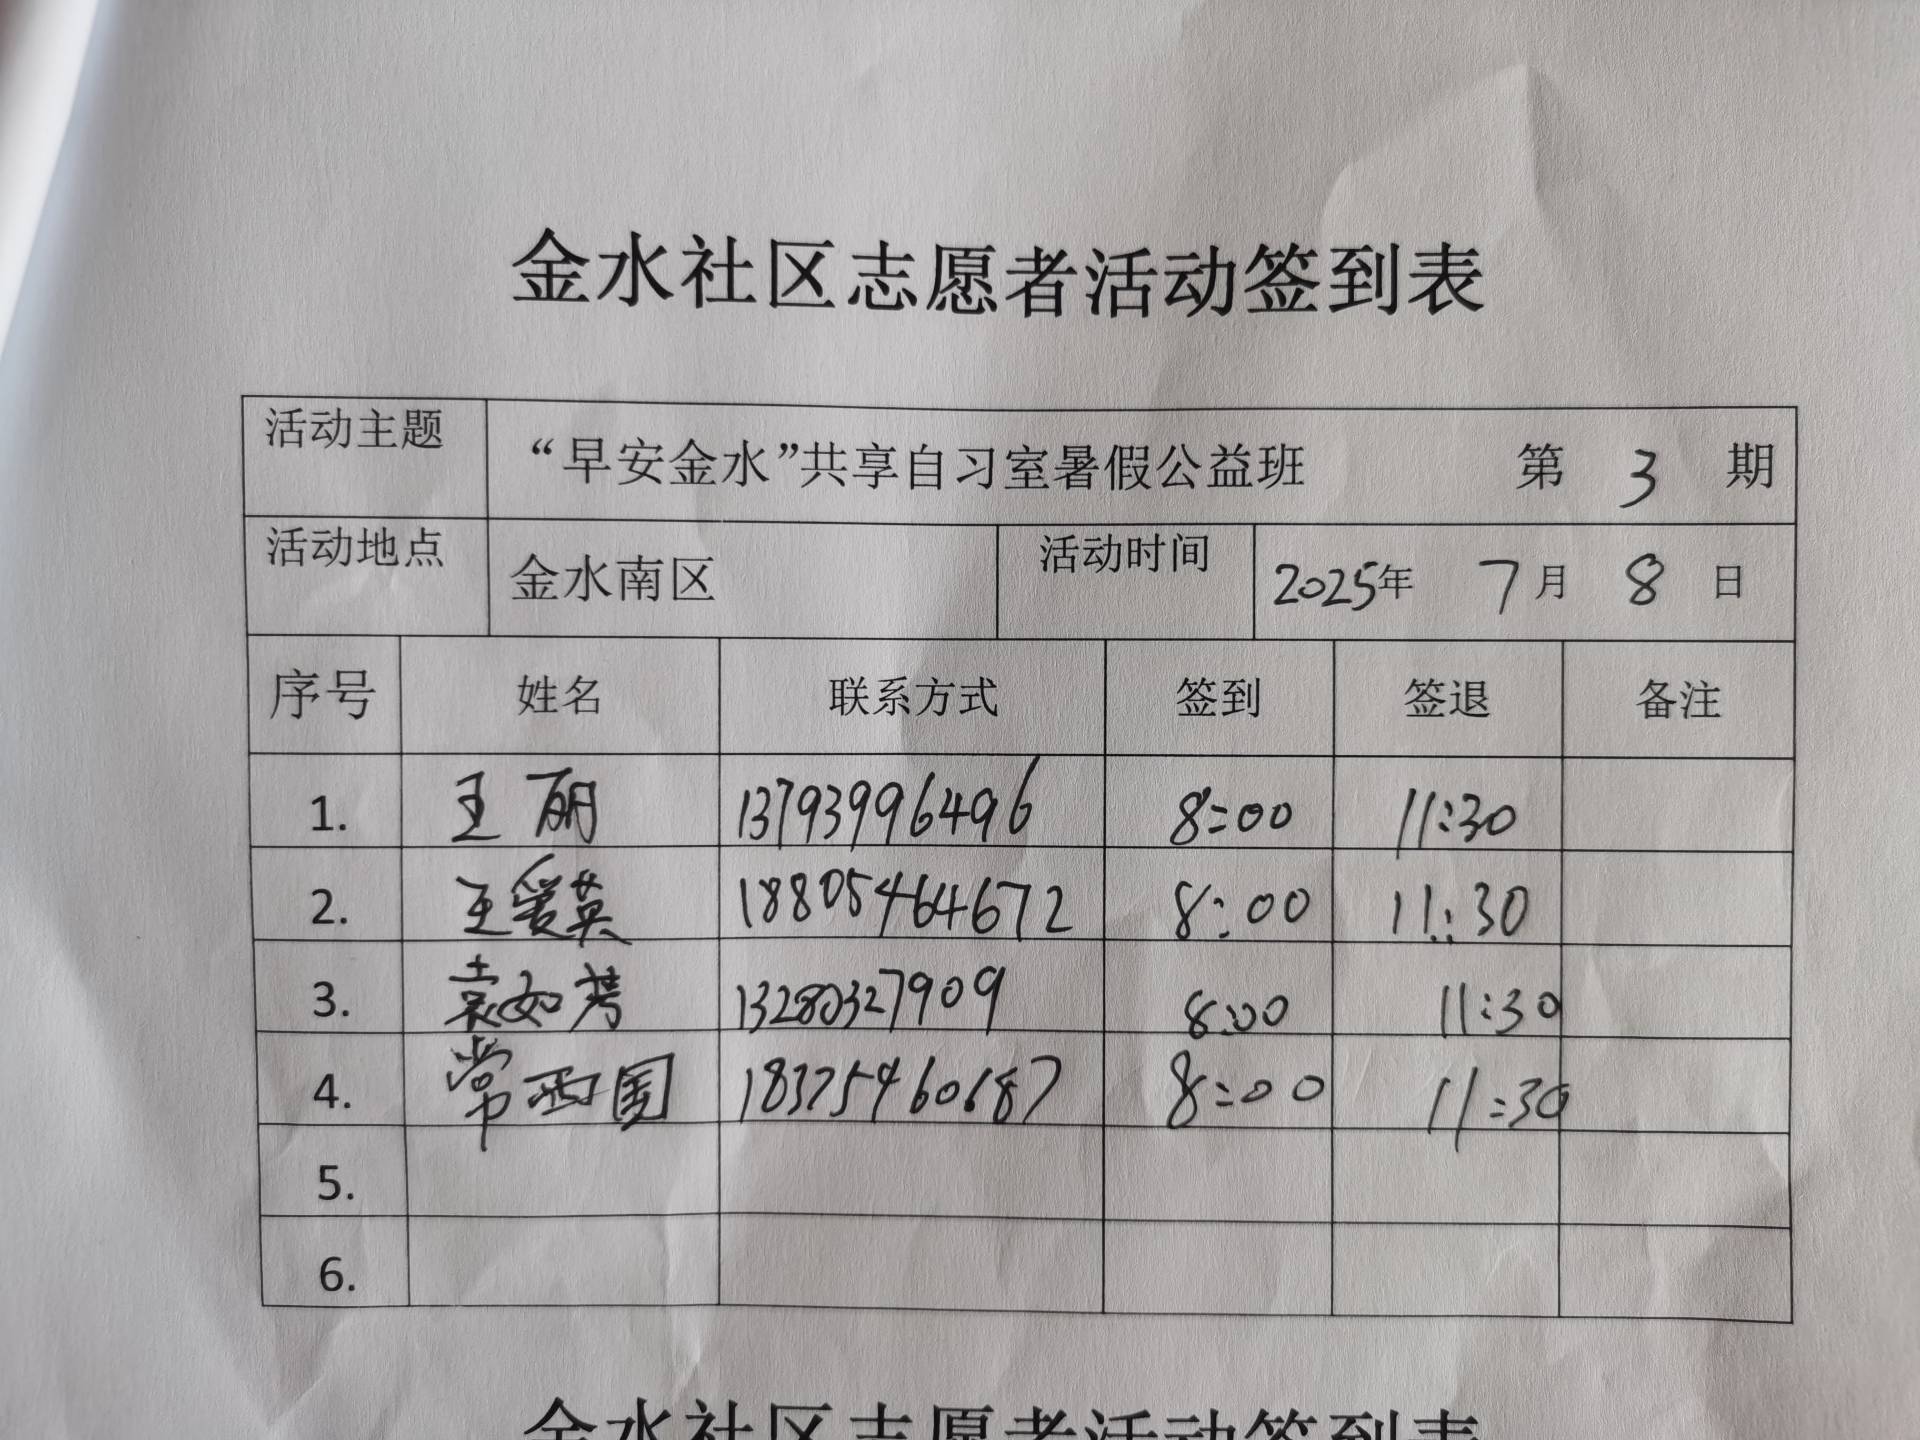 金水社区志愿者活动签到表
活动主题 “早安金水”共享自习室暑假公益班 第 3 期
活动地点 金水南区 活动时间 2025年 7月 8 日
序号 姓名 联系方式 签到 签退 备注
1. 王丽 13793996496 8:00 11:30
2. 王爱英 18805464672 8:00 11:30
3. 袁如芳 13280327909 8:00 11:30
4. 常西国 18375460687 8:00 11:30
5.
6.
金水社区志愿者活动签到表